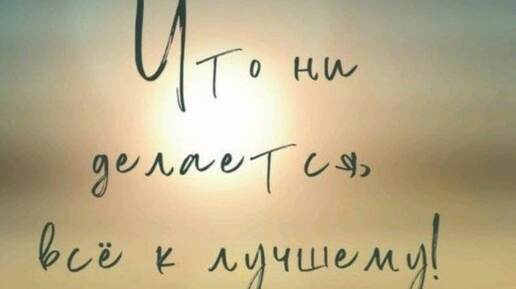 Что ни
делается,
всё к лучшему!